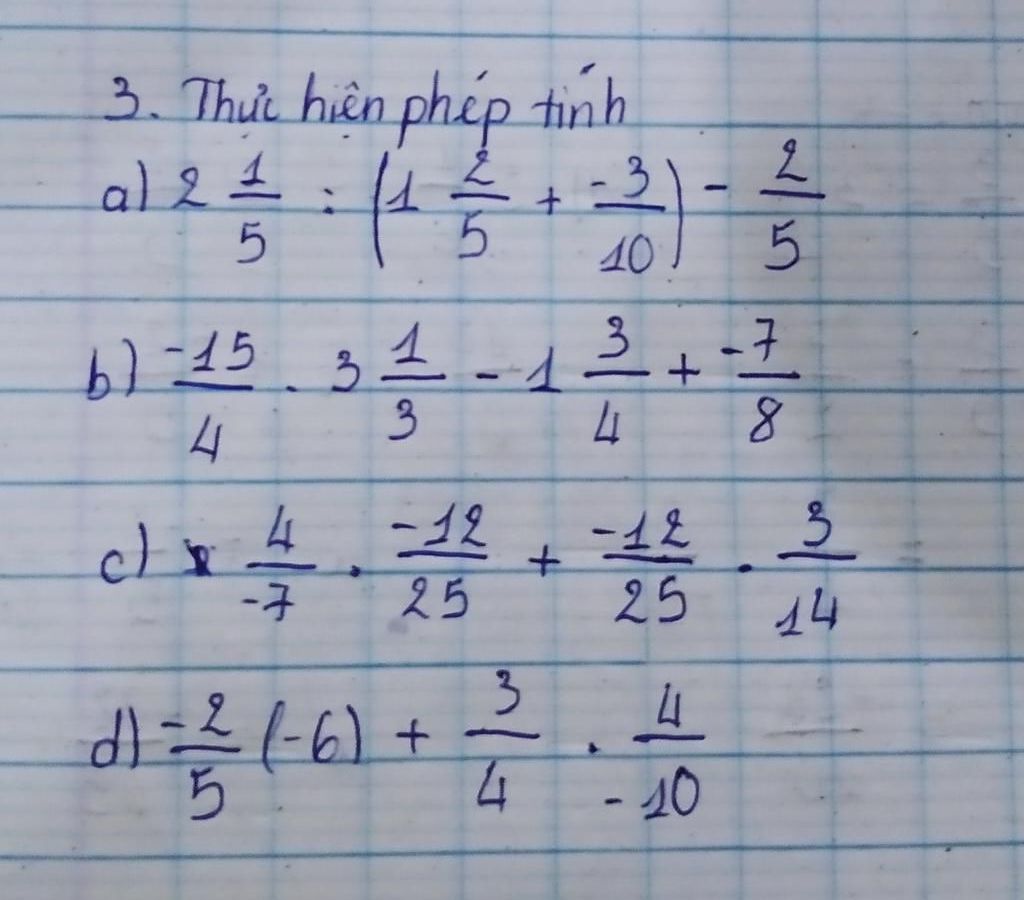 3. Thực hiện phép tính
a) 2 1/5 : (1 2/5 + -3/10) - 2/5
b) -15/4 . 3 1/3 - 1 3/4 + -7/8
c) 4/-7 . -12/25 + -12/25 . 3/14
d) -2/5 (-6) + 3/4 . 4/-10